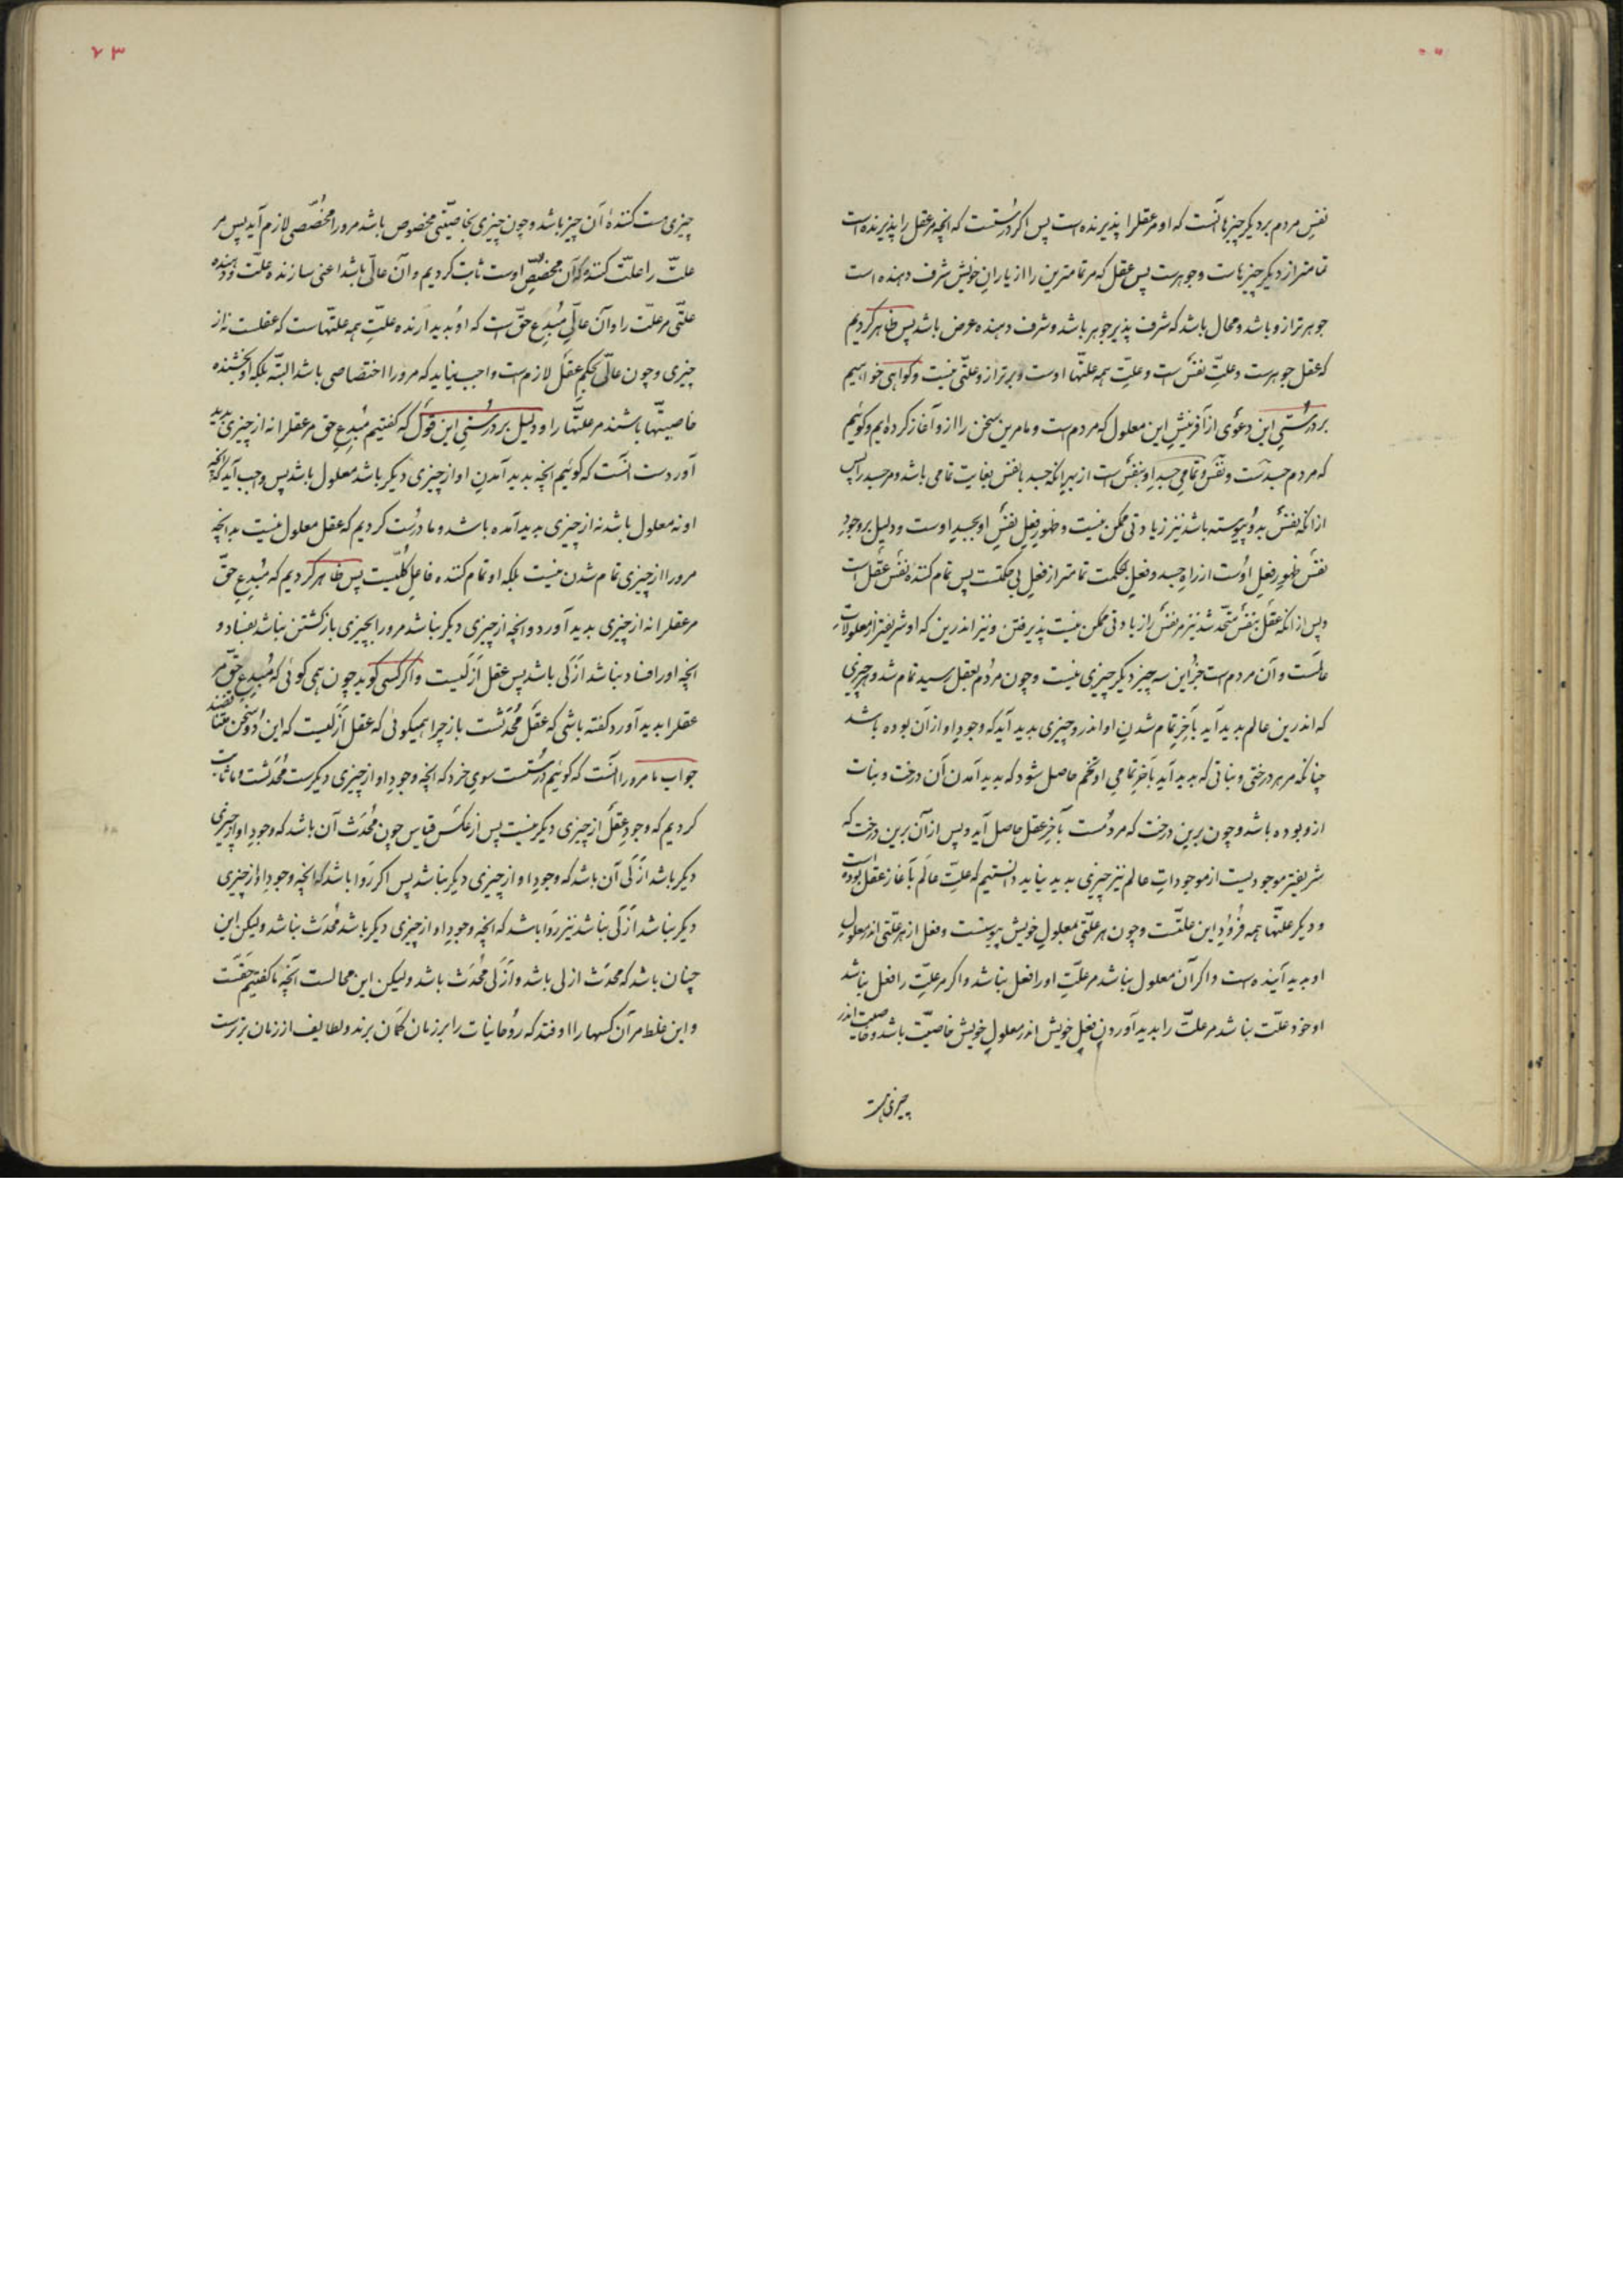 نفسِ مردم بر دیگر چیزها آنَست که او مر عقل را پذیرنده است پس اگر درُستست که آنچه مر عقل را پذیرنده است
تمامتر از دیگر چیزهاست و جوهرست پس عقل که مر تمامترین را از یارانِ خویش شرف دهنده است
جوهرتر ازو باشد و محال باشد که شرف پذیر جوهر باشد و شرف دهنده عرض باشد پس ظاهر کردیم
که عقل جوهرست و علّتِ نفسْ است و علّتِ همه علّتها اوست و برتر ازو علّتی نیست و گواهی خواهیم
بر درُستیِ این دعوی از آفرینشِ این معلول که مردم است و ما مر این سخن را ازو آغاز کرده‌ایم و گوئیم
که مردم جسدست و نفسْ و تمامیِ جسدِ او بنفسْ است از بهرِ آنکه جسد با نفس بغایت تمامی باشد و مر جسد را پس
از آنکه نفسْ بدو پیوسته باشد نیز زیادتی ممکن نیست و ظهورِ فعلِ نفسِ او بجسدِ اوست و دلیل بر وجودِ
نفسْ ظهورِ فعلِ اوست از راهِ جسد و فعلِ بحکمت تمامتر از فعلِ بی حکمتست پس تمام کنندهٔ نفسْ عقلْ است
و پس از آنکه عقلْ بنفسْ متّحد شد نیز مر نفسْ را زیادتی ممکن نیست پذیرفتن و نیز اندرین که او شریفتر از معلولاتِ
عالَمست و آن مردم است جز این سه چیز دیگر چیزی نیست و چون مردُم بعقل رسید تمام شد و هر چیزی
که اندرین عالم پدید آید بآخِرِ تمام شدنِ او اندرو چیزی پدید آید که وجودِ او از آن بوده باشد
چنانکه مر هر درختی و نباتی که پدید آید بآخرِ تمامیِ او تخم حاصل شود که پدید آمدنِ آن درخت و نبات
ازو بوده باشد و چون برین درخت که مردُمست بآخِر عقل حاصل آید و پس از آن برین درخت که
شریفتر موجودیست از موجوداتِ عالم نیز چیزی پدید نیاید دانستیم که علّتِ عالَم بآغاز عقل بوده است
و دیگر علّتها همه فرُودِ این علّتست و چون هر علّتی بمعلولِ خویش پیوستست و فعل از هر علّتی اندر معلولِ
او پدید آینده است و اگر آن معلول نباشد مر علّتِ او را فعل نباشد و اگر مر علّت را فعل نباشد
او خود علّت نباشد مر علّت را پدید آوردنِ فعلِ خویش اندر معلولِ خویش خاصیّت باشد و خاصیّت اندر
چیزی هست
۷۳
چیزی هست کنندهٔ آن چیز باشد و چون چیزی بخاصیّتی مخصوص باشد مرورا مخصّصی لازم آید پس مر
علّت را علّت کننده که آن مخصِّصِ اوست ثابت کردیم و آن عالّ باشد اعنی سازندهٔ علّت و دهندهٔ
علّتی مر علّت را و آن عالّ مُبدِعِ حقّ است که او پدید آرندهٔ علّتِ همه علّتهاست که عقلست نه از
چیزی و چون عالّ بحکمِ عقلْ لازم است واجب نیاید که مرورا اختصاصی باشد البتّه بلکه او بخشنده
خاصیتّها باشند مر علّتها را و دلیل بر درُستیِ این قَول که گفتیم مُبدِعِ حق مر عقل را نه از چیزی پدید
آوردست آنست که گوئیم آنچه پدید آمدنِ او از چیزی دیگر باشد معلول باشد پس واجب آید که آنچه
او نه معلول باشد نه از چیزی پدید آمده باشد و ما درُست کردیم که عقل معلول نیست بدانچه
مرورا از چیزی تمام شدن نیست بلکه او تمام کننده فاعلِ کُلّیست پس ظاهر کردیم که مُبدِعِ حقّ
مر عقل را نه از چیزی پدید آورد و آنچه از چیزی دیگر نباشد مرورا بچیزی بازگشتن نباشد بفساد و
آنچه او را فساد نباشد ازَلی باشد پس عقل ازَلیست و اگر کسی گوید چون همی گوئی که مُبدِعِ حقّ مر
عقل را پدید آورد گفته باشی که عقْل مُحدَثست باز چرا همیگوئی که عقل ازَلیست که این دو سخن متناقضند
جواب ما مرورا آنَست که گوئیم درُستست سویِ خرد که آنچه وجودِ او از چیزی دیگرست مُحدَثست و ما ثابت
کردیم که وجودِ عقلْ از چیزی دیگر نیست پس از عکْسِ قیاس چون مُحدَث آن باشد که وجودِ او از چیزی
دیگر باشد ازَلی آن باشد که وجودِ او از چیزی دیگر نباشد پس اگر رَوا باشد که آنچه وجودِ او از چیزی
دیگر نباشد ازَلی نباشد نیز رَوا باشد که آنچه وجودِ او از چیزی دیگر باشد مُحدَث نباشد ولیکن این
چنان باشد که محدَث ازلی باشد و ازَلی مُحدَث باشد ولیکن این محالست آنچه ما گفتیم حقّست
و این غلط مر آن کسها را اوفتد که رُوحانیات را بر زمان گمَان برند و لطایف از زمان برترست